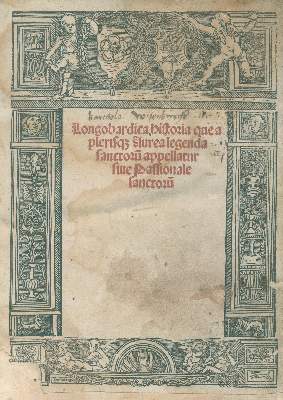 Longobardica, historia que a
plerisqꝫ Aurea legenda
sanctorū appellatur
siue Passionale
sanctorū